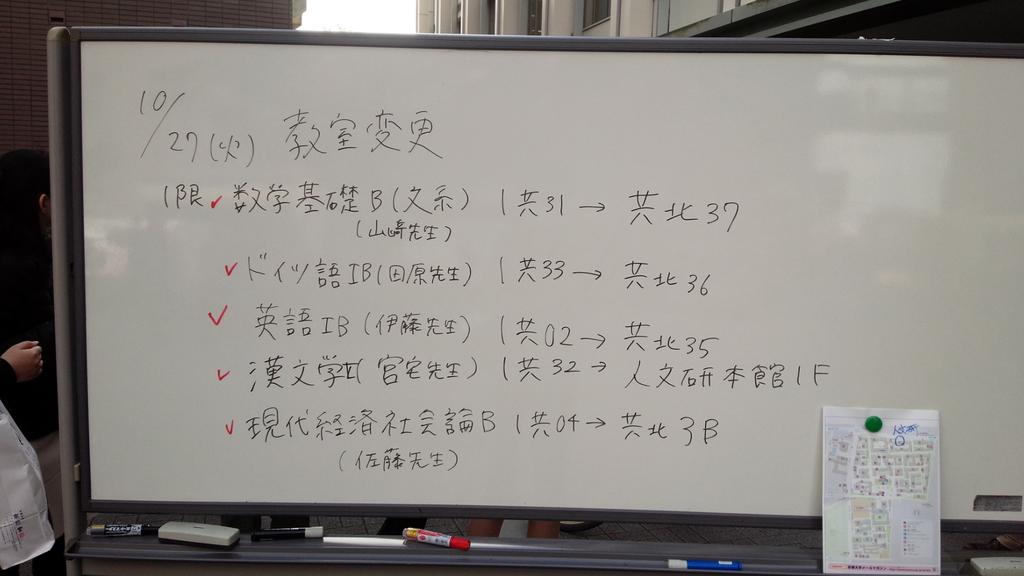 10/27(火) 教室変更
1限 ✓ 数学基礎B(文系) 1共31 → 共北37
(山崎先生)
✓ ドイツ語IB(田原先生) 1共33 → 共北36
✓ 英語IB(伊藤先生) 1共02 → 共北35
✓ 漢文学II(宮宅先生) 1共32 → 人文研本館1F
✓ 現代経済社会論B 1共04 → 共北3B
(佐藤先生)